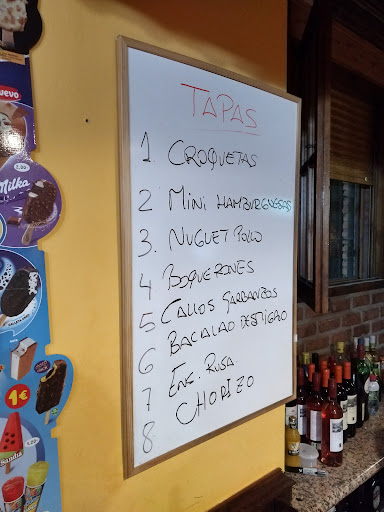 TAPAS
1. CROQUETAS
2 MINI HAMBURGUESAS
3. NUGUET POLLO
4 BOQUERONES
5 CALLOS GARBANZOS
6 BACALAO DESMIGAO
7 ENS. RUSA
8 CHORIZO
NUEVO
Milka
1€
Sandía